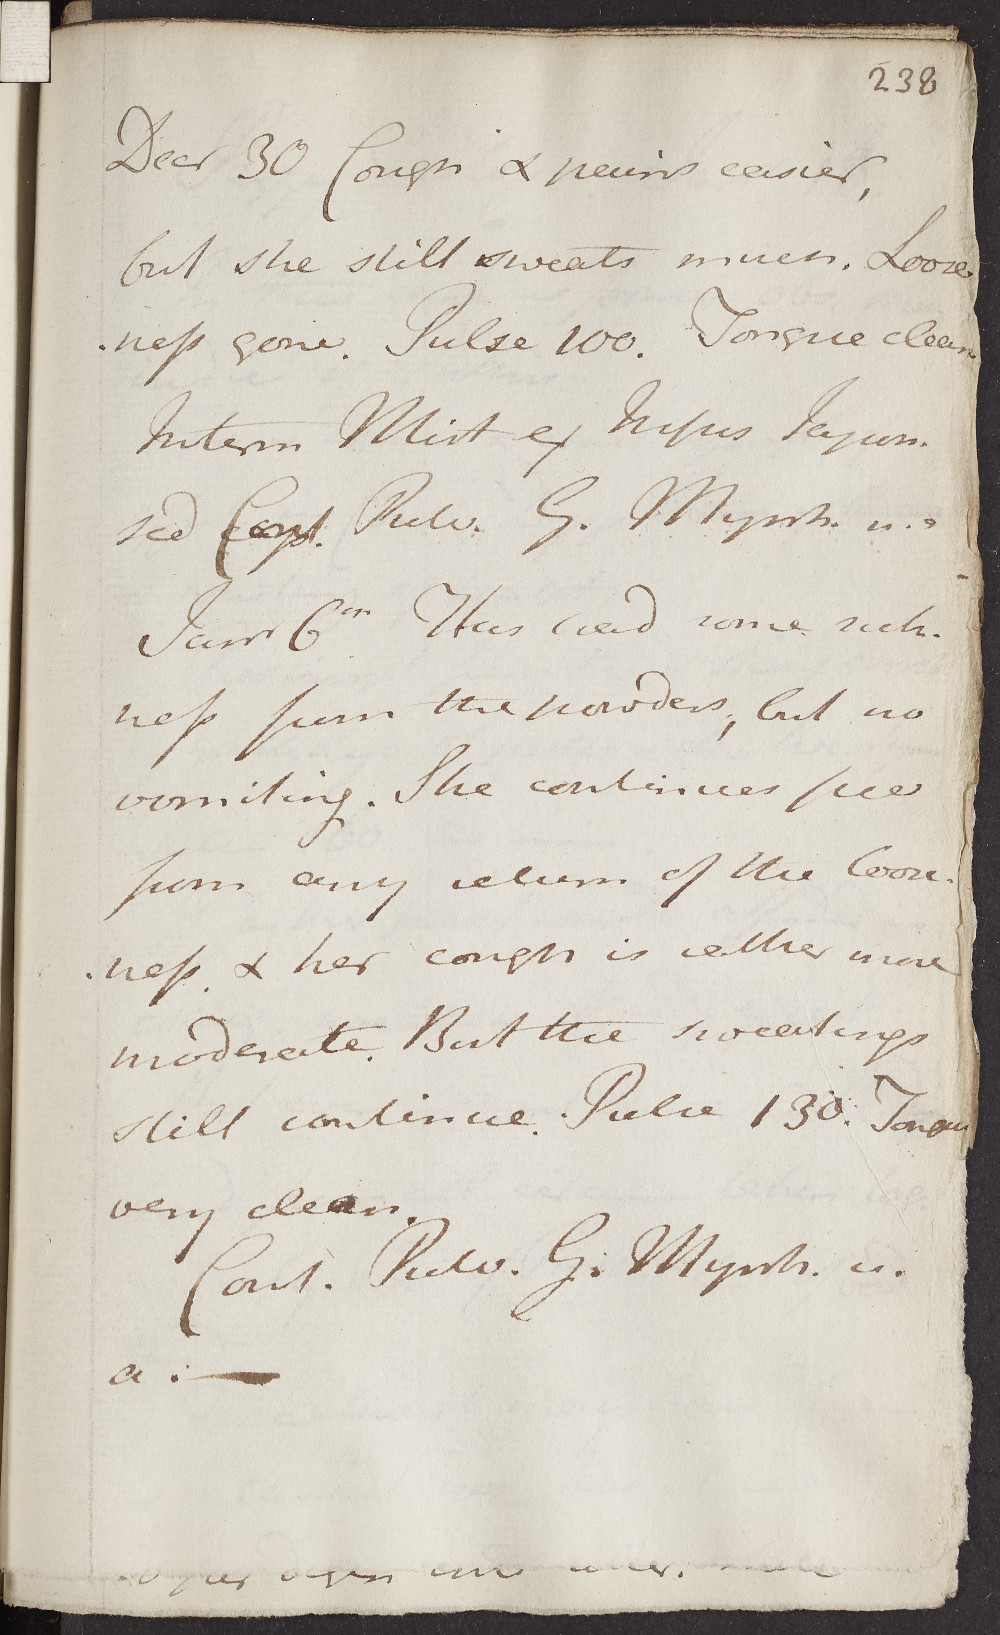 238
Decr 30 Cough & pains easier,
but she still sweats much. Loose
-ness gone. Pulse 100. Tongue clean.
Interm Mist ex Infus Japon.
sed Cont. Pulv. G. Myrrh. u. a
Janr 6th Has had some sick-
ness from the powders, but no
vomiting. She continues free
from any return of the loose-
-ness, & her cough is rather more
moderate. But the sweatings
still continue. Pulse 130. Tongue
very clean.
Cont. Pulv. G. Myrrh. u.
a. —